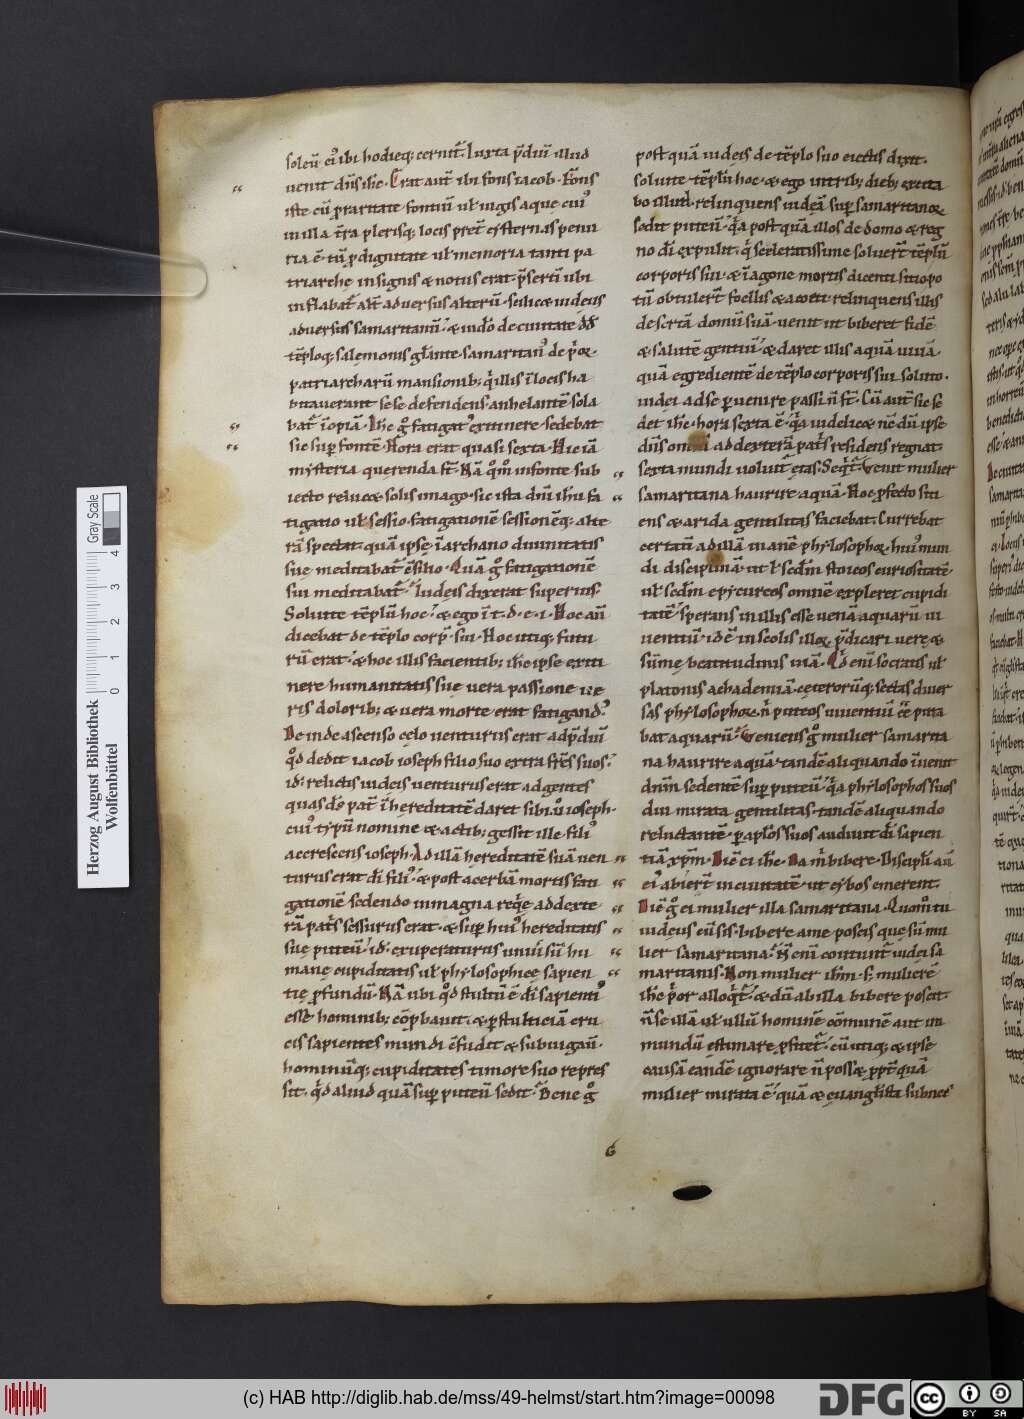 soleū ei᷒ ibi hodieq; cernit᷒. Iuxta p̄diū illud
uenit dn̄s ih̄c. Erat aut̄ ibi fons iacob. Fons
iste cū p̱ raritate fontiū ul̵ iugis aque cui᷒
in illa t̄ra plerisq; locis pret̄ cysternas penu
ria ē. tū p̱ dignitate ul̵ memoria tanti pa
triarche insignis & notus erat. p̄sertī ubi
inflabat᷒ alt̄ aduersus alterū. scilic& iudeus
aduersus samaritanū. & iudeˢ de ciuitate d̄d̄
tēploq; salemonis gl̄iante. samaritan᷒ de p̱oꝝ
patriarcharū mansionib; q̵ illis ī locis ha
bitauerant sese defendens. anhelantē sola
bat᷒ īopiā. Ih̄c g̊ fatigat᷒ ex itinere. sedebat
sic sup̱ fontē. Hora erat quasi sexta. Hic iā
mysteria querenda st̄. Nā q̊m̊ in fonte sub
iecto reluc& solis imago. sic ista dn̄i ih̄u fa
tigatio ul̵ sessio. fatigationē sessionēq; alte
rā spectat. quā ipse ī archano diuinitatis
sue meditabat᷒ c̄silio. Quā g̊ fatigationē
sui meditabat᷒. Iudeis dixerat superius.
Soluite tēplū hoc. & ego ī t. d. e. i. Hoc aū
dicebat de tēplo corp̱. sui. Hoc utiq; futu
rū erat. & hoc illis facientib; ih̄c ipse exiti
nere humanitatis sue uera passione ue
ris dolorib; & uera morte erat fatigand᷒.
Deinde ascenso celo uenturus erat ad p̄diū
q̊d dedit iacob ioseph filio suo extra frēs suos.
id. relictis iudeis uenturus erat ad gentes
quas d̄s pat̄ ī hereditatē daret sibi. ū ioseph.
cui᷒ typū nomine & actib; gessit ille. fili᷒
accrescens ioseph. Ad illā hereditatē suā uen
turus erat dī fili᷒. & post acerbā mortis fati
gationē sedendo in magna req̵e ad dexte
rā patī́s sessurus erat. & sup̱ hui᷒ hereditatis
sue puteū. id. exuperaturus uniūsū hu
mane cupiditatis ul̵ phylosophice sapien
tie p̱fundū. Nā ubi q̊d stultū ē dī sapienti᷒
esse hominib; cōp̱bauit. & p̱ stulticiā cru
cis sapientes mundi c̄fudit & subiugau̅.
hominūq; cupiditates timore suo repres
sit. q̵d aliud quā sup̱ puteū sedit. Bene g̊
post quā iudeis de tēplo suo eiectis dixit.
soluite tēplū hoc. & ego in trib; dieb; excita
bo illud. relinquens iudeā sup̱ samaritanoꝝ
sedit puteū. q̵a post quā illos de domo & reg
no dī expulit. q̵ sceleratissime soluer̄t tēplū
corporis sui. & ī agone mortis dicenti sitio po
tū obtuler̄t foellis & aceti. relinquens illis
desertā domū suā. uenit ut biberet fidē
& salutē gentiū. & daret illis aquā uiuā.
quā egredientē de tēplo corporis sui soluto.
iudei ad se p̱uenire passi n̄ st̄. Cū aut̄ sic se
det ih̄c. hora sexta ē. q̵a uidelic& nē dū ipse
dn̄s omniū ad dexterā patīs residens regnat.
sexta mundi uoluit᷒ etas. Seq̵t᷒. Venit mulier
samaritana haurire aquā. Hoc p̱fecto siti
ens & arida gentilitas faciebat. Currebat
certatī ad illā inanē phylosophoꝝ hui᷒ mun
di disciplinā. ut l̵ sc̄dm stoicos curiositatē.
ul̵ sc̄dm epycureos omnē expleret cupidi
tatē. sperans in illis esse uenā aquarū ui
uentiū. id ē in scolis illoꝝ p̄dicari uere &
sūme beatitudinis uiā. Qd̄ enī socratis ul̵
platonis achademiā. ceterorūq; sectas diuer
sas phylosophoꝝ. n̄ puteos uiuentiū c̄e puta
bat aquarū. Veniens g̊ mulier samarita
na haurire aquā. tandē aliquando īuenit
dn̄m sedentē sup̱ puteū. q̵a phylosophos suos
diu mirata gentilitas. tandē aliquando
reluctantē p̱ ap̄los suos audiuit dī sapien
tiā xp̄m. Dic̄ ei ih̄c. Da m̵ bibere. Discipli̅ aū
ei᷒ abiert᷒ in ciuitatē. ut cybos emerent.
Dic̄ g̊ ei mulier illa samaritana. Quom̊ tu
iudeus cū sis. bibere a me poscis que sū mu
lier samaritana. N̄ enī coutunt᷒ iudei sa
maritanis. Non mulier ih̄m. s; mulierē
ih̄c p̱or alloq̵t᷒. & dū ab illa bibere poscit.
n̄ se illā ul̵ ullū hominē cōmunē aut im
mundū estimare p̱fitet᷒. cū utiq; & ipse
causā eandē ignorare n̄ poss& p̱pt̄ quā
mulier mirata ē. quā & euangl̄ista subnec
6
Herzog August Bibliothek
Wolfenbüttel
Gray Scale
0 1 2 3 4
(c) HAB http://diglib.hab.de/mss/49-helmst/start.htm?image=00098
DFG
cc BY SA